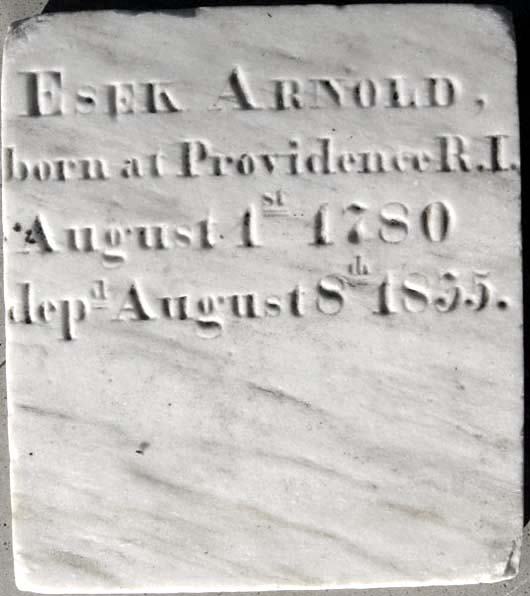 ESEK ARNOLD,
born at Providence R.I.
August 1st 1780
depd August 8th 1855.